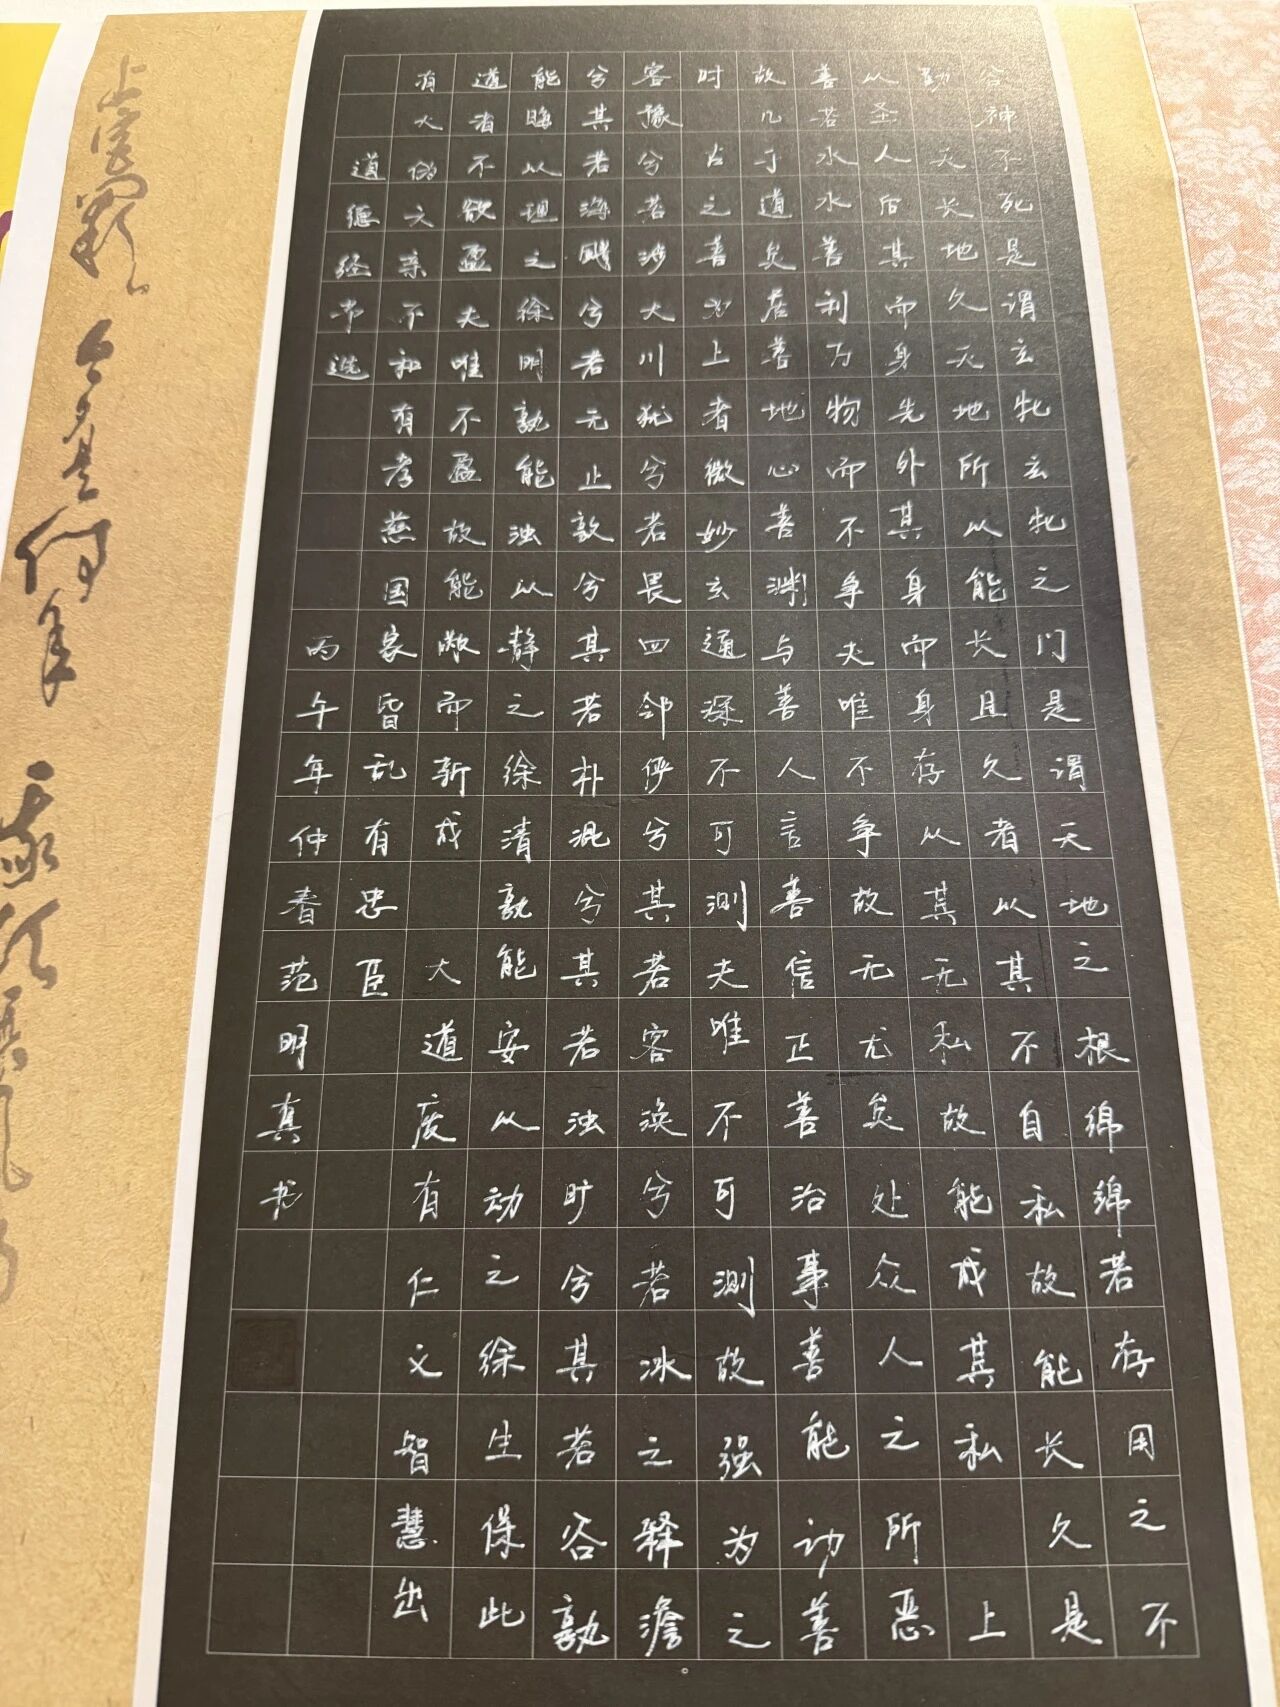 谷神不死是谓玄牝玄牝之门是谓天地之根绵绵若存用之不
勤 天长地久天地所以能长且久者以其不自私故能长久是
以圣人后其而身先外其身而身存以其无私故能成其私 上
善若水水善利万物而不争夫唯不争故无尤矣处众人之所恶
故几于道矣居善地心善渊与善人言善信正善治事善能动善
时 古之善为上者微妙玄通深不可测夫唯不可测故强为之
容豫兮若涉大川犹兮若畏四邻俨兮其若客涣兮若冰之释澹
兮其若海飂兮若无止敦兮其若朴混兮其若浊旷兮其若谷孰
能晦以理之徐明孰能浊以静之徐清孰能安以动之徐生保此
道者不欲盈夫唯不盈故能敝而新成 大道废有仁义智慧出
有大伪六亲不和有孝慈国家昏乱有忠臣
道德经节选 丙午年仲春范明真书
上宫阙今夕是何年我欲乘风